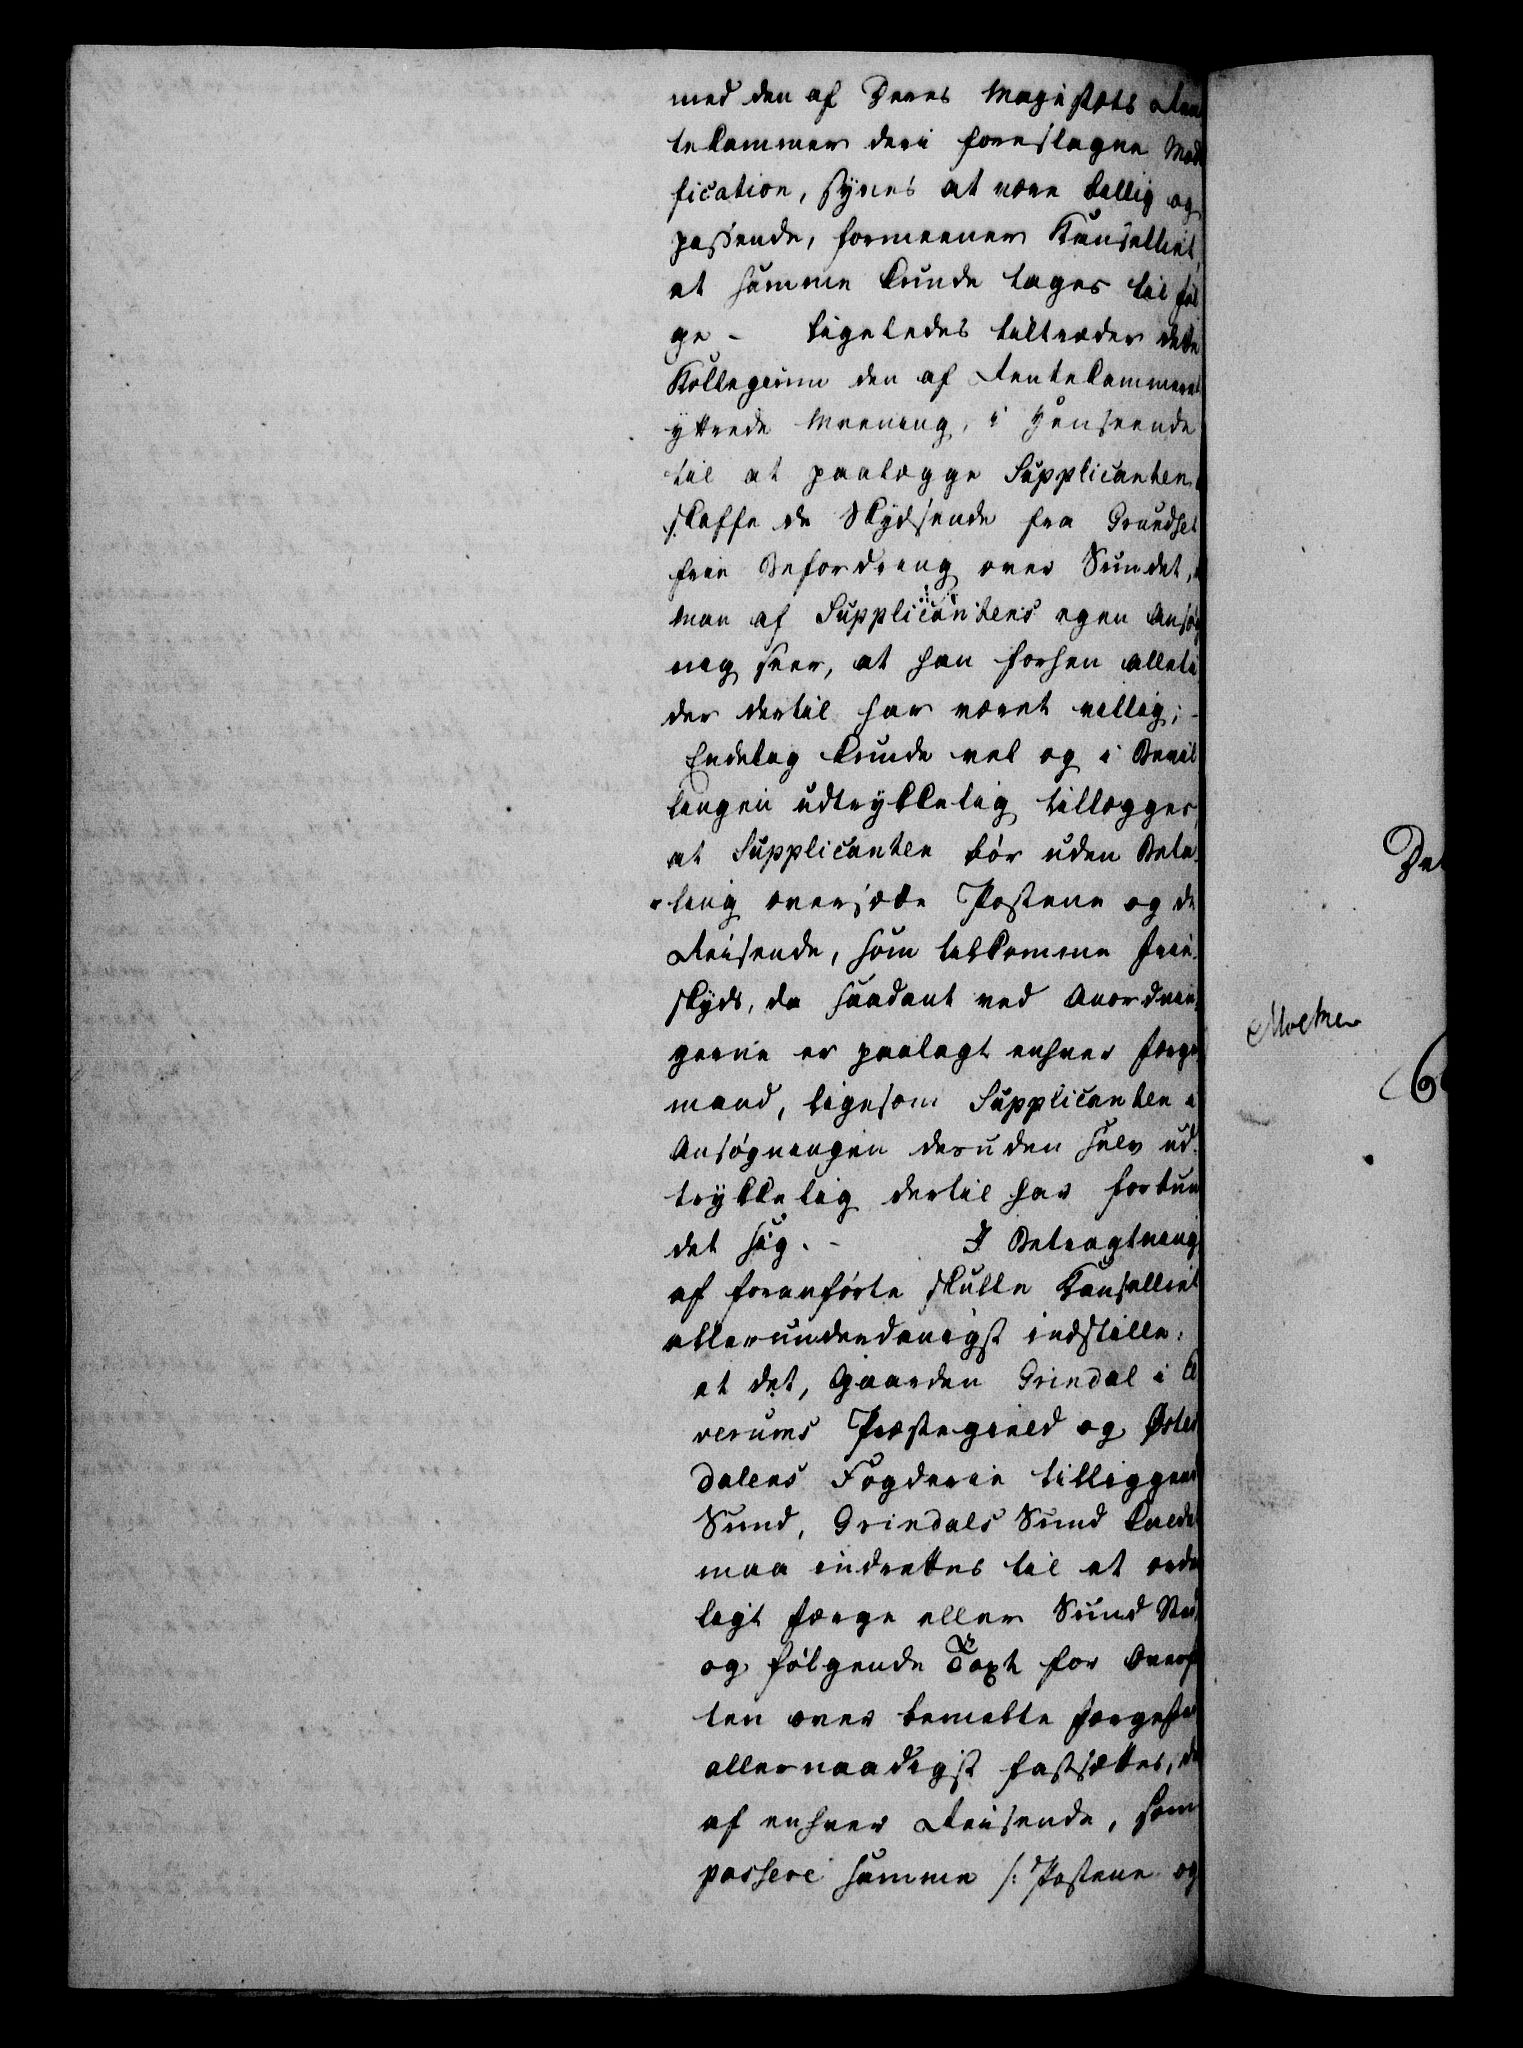 med den af Deres Majestæts Ren
tekammer deri foreslagne Modi
fication, synes at være billig og
passende, formeener Kanselliet,
at samme kunde tages til føl
ge – Ligeledes tiltræder dette
Kollegium den af Rentekammeret
yttrede Meening, i Henseende
til at paalægge Supplicanten
skaffe de Skydsende fra Grundset
frie Befordring over Sundet,
man af Supplicantens egen Ansøg
ning seer, at han forhen alleti
der dertil har været villig; –
Endelig kunde vel og i Bevil
lingen udtrykkelig tillægges,
at Supplicanten bør uden Beta-
ling oversætte Postene og de
Reisende, som tilkomme frie
skyds, da saadant ved Anordnin
gerne er paalagt enhver Færge
mand, ligesom Supplicanten i
Ansøgningen desuden selv ud-
trykkelig dertil har forbun
det sig. – I Betragtning
af foranførte skulle Kanselliet
allerunderdanigst indstille:
at det, Gaarden Grindal i El
verums Præstegield og Øster
dalens Fogderie tilliggende
Sund, Grindals Sund kaldet
maa indrettes til et orde
ligt Færge eller Sund Sted
og følgende Taxt for Overfar
ten over bemeldte Færgested
allernaadigst fastsættes, at
af enhver Reisende, som
passere samme /: Postene og
Det